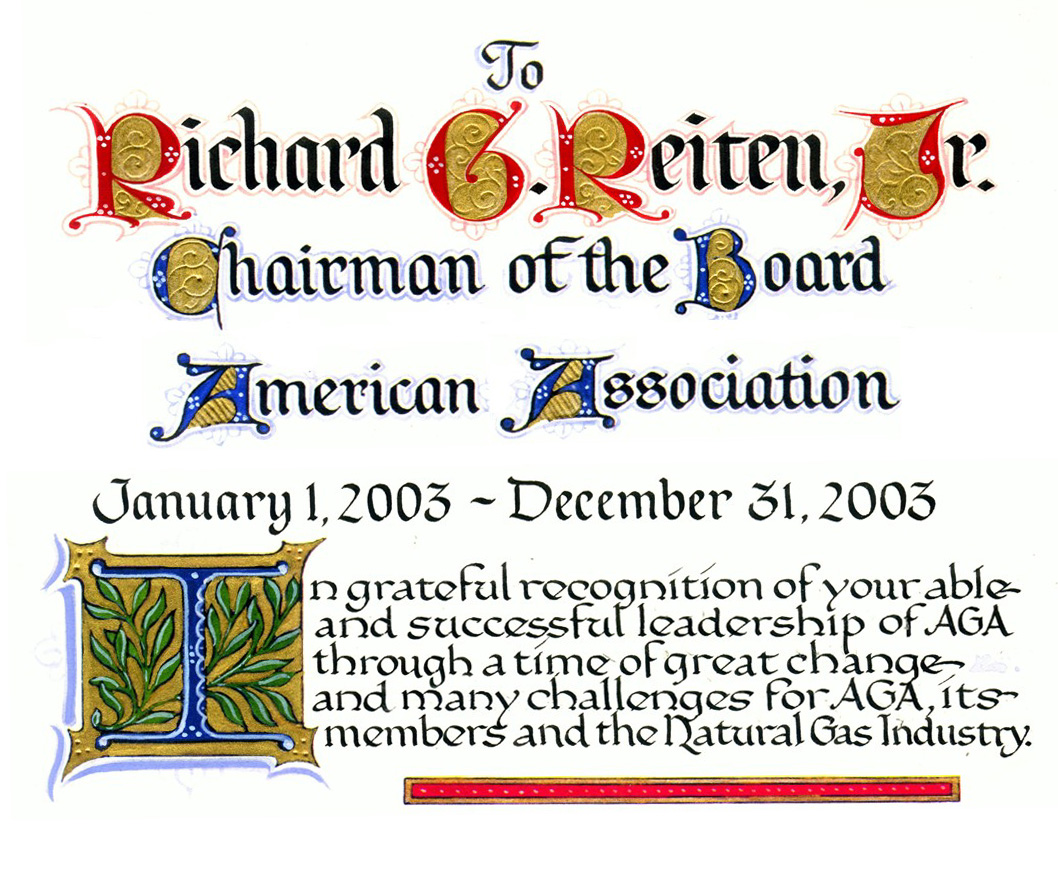 To
Richard G. Reiten, Jr.
Chairman of the Board
American Association
January 1, 2003 ~ December 31, 2003
In grateful recognition of your able
and successful leadership of AGA
through a time of great change
and many challenges for AGA, its
members and the Natural Gas Industry.